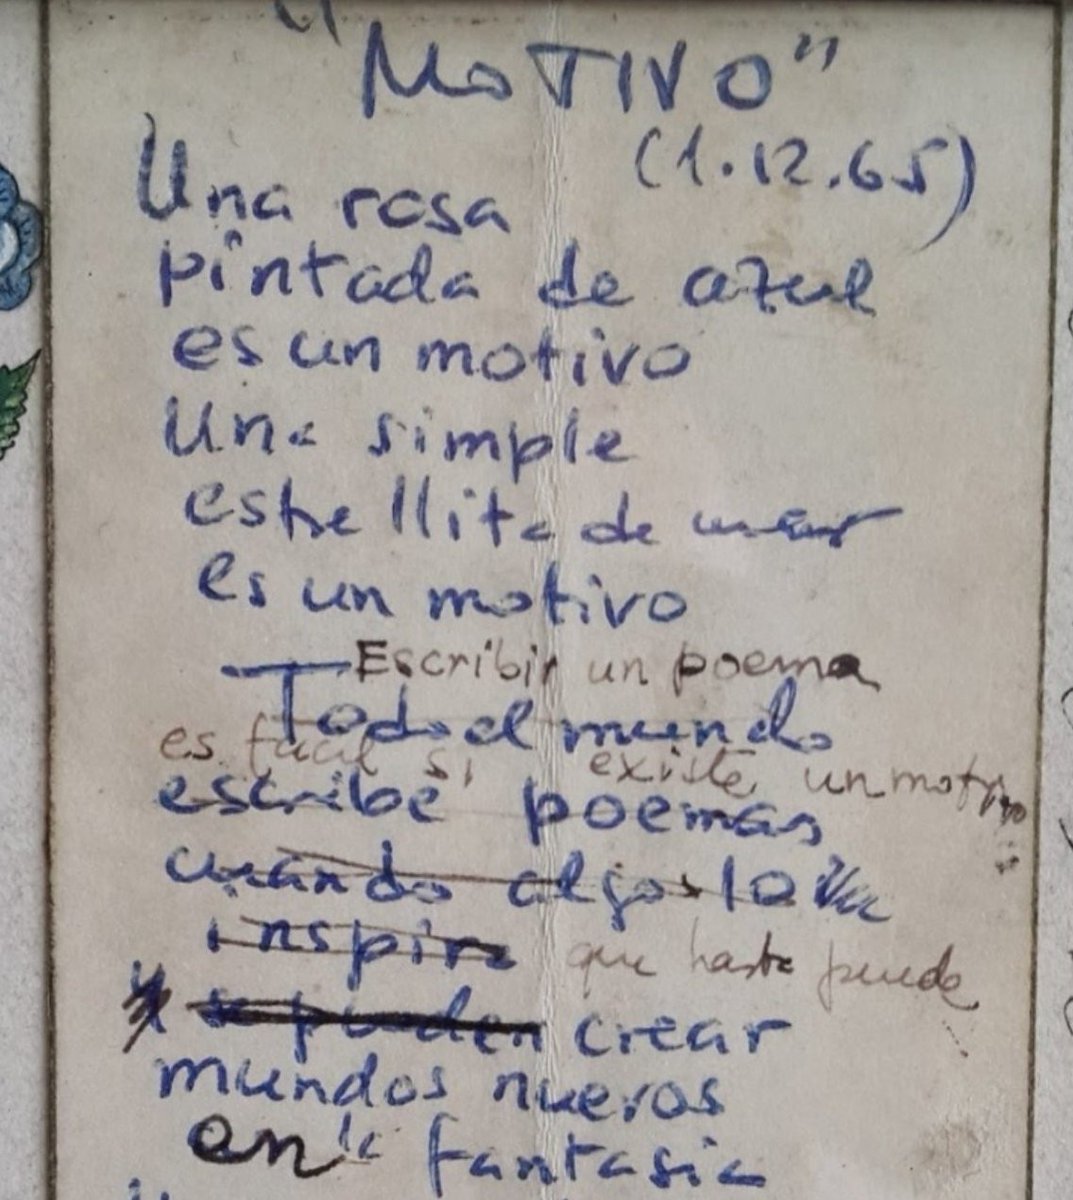 "MOTIVO"
(1.12.65)
Una rosa
pintada de azul
es un motivo
Una simple
estrellita de mar
es un motivo
Escribir un poema
Todo el mundo
es facil si existe un motivo
escribe poemas
cuando algo lo
inspira que hasta puede
y se pueden crear
mundos nuevos
en la fantasia